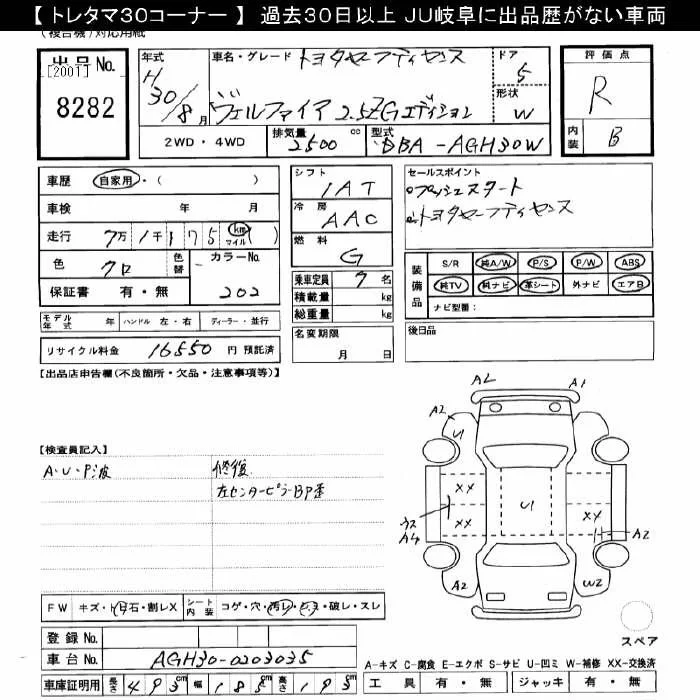 【 トレタマ30コーナー 】 過去30日以上 JU岐阜に出品歴がない車両
(複合機)対応用紙
出品No.
[2001]
8282
年式
H
30/8月
車名・グレード トヨタセーフティセンス
ヴェルファイア 2.5ZGエディション
ドア
5
形状
W
評価点
R
内装 B
2WD・4WD
排気量 2500 cc
型式 DBA-AGH30W
車歴 自家用・( )
車検 年 月
走行 7万1千175 km マイル ( )
色 クロ 色替
カラーNo. 202
保証書 有・無
シフト
IAT
冷房
AAC
燃料
G
乗車定員 7名
積載量 kg
総重量 kg
セールスポイント
○プッシュスタート
○トヨタセーフティセンス
装備品
S/R 純A/W P/S P/W ABS
純TV 純ナビ 革シート 外ナビ エアB
ナビ型番:
モデル年式 年 ハンドル 左・右 ディーラー・並行
リサイクル料金 16550 円 預託済
名変期限
月 日
後日品
【出品店申告欄(不良箇所・欠品・注意事項等)】
A2 A1
A2
U1
【検査員記入】
A・U・P波
修復
左センターピラーBP歪
XX
XX
U1
XX
ウス
A4
A2
A2
W2
FW キズ・飛石・割レX
シート内装 コゲ・穴・汚レ・シミ・破レ・スレ
登録No.
車台No. AGH30-0203035
スペア
A-キズ C-腐食 E-エクボ S-サビ U-凹ミ W-補修 XX-交換済
車庫証明用 長さ 493cm 幅 185cm 高さ 193cm
工具 有・無 ジャッキ 有・無